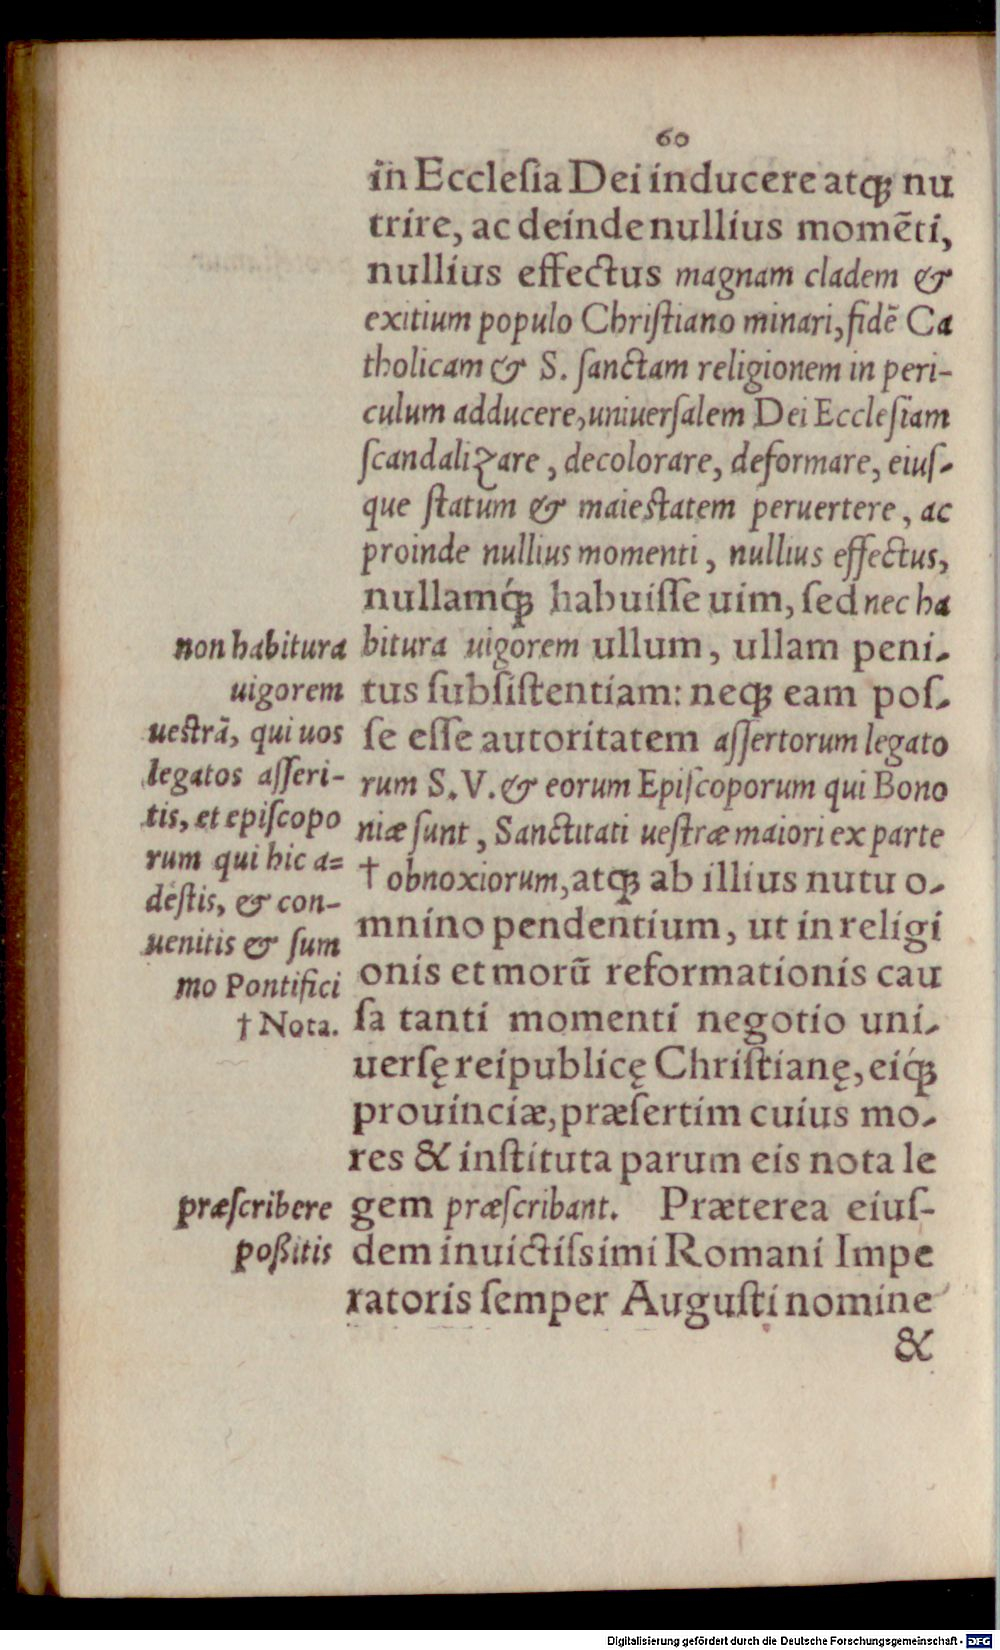 60
in Eccleſia Dei inducere atqꝫ nu
trire, ac deinde nullius momẽti,
nullius effectus magnam cladem &
exitium populo Chriſtiano minari, fidẽ Ca
tholicam & S. ſanctam religionem in peri-
culum adducere, uniuerſalem Dei Eccleſiam
ſcandalizare, decolorare, deformare, eiuſ-
que ſtatum & maieſtatem peruertere, ac
proinde nullius momenti, nullius effectus,
nullamq́ꝫ habuiſſe uim, ſed nec ha
bitura uigorem ullum, ullam peni-
tus ſubſiſtentiam: neqꝫ eam poſ-
ſe eſſe autoritatem aſſertorum legato
rum S. V. & eorum Epiſcoporum qui Bono
niæ ſunt, Sanctitati ueſtræ maiori ex parte
† obnoxiorum, atqꝫ ab illius nutu o-
mnino pendentium, ut in religi
onis et morũ reformationis cau
ſa tanti momenti negotio uni-
uerſę reipublicę Chriſtianę, eiq́ꝫ
prouinciæ, præſertim cuius mo-
res & inſtituta parum eis nota le
gem præſcribant. Præterea eiuſ-
dem inuictiſsimi Romani Impe
ratoris ſemper Auguſti nomine
&
non habitura
uigorem
ueſtrã, qui uos
legatos aſſeri-
tis, et epiſcopo
rum qui hic a=
deſtis, & con-
uenitis & ſum
mo Pontifici
† Nota.
præſcribere
poßitis
Digitalisierung gefördert durch die Deutsche Forschungsgemeinschaft - DFG